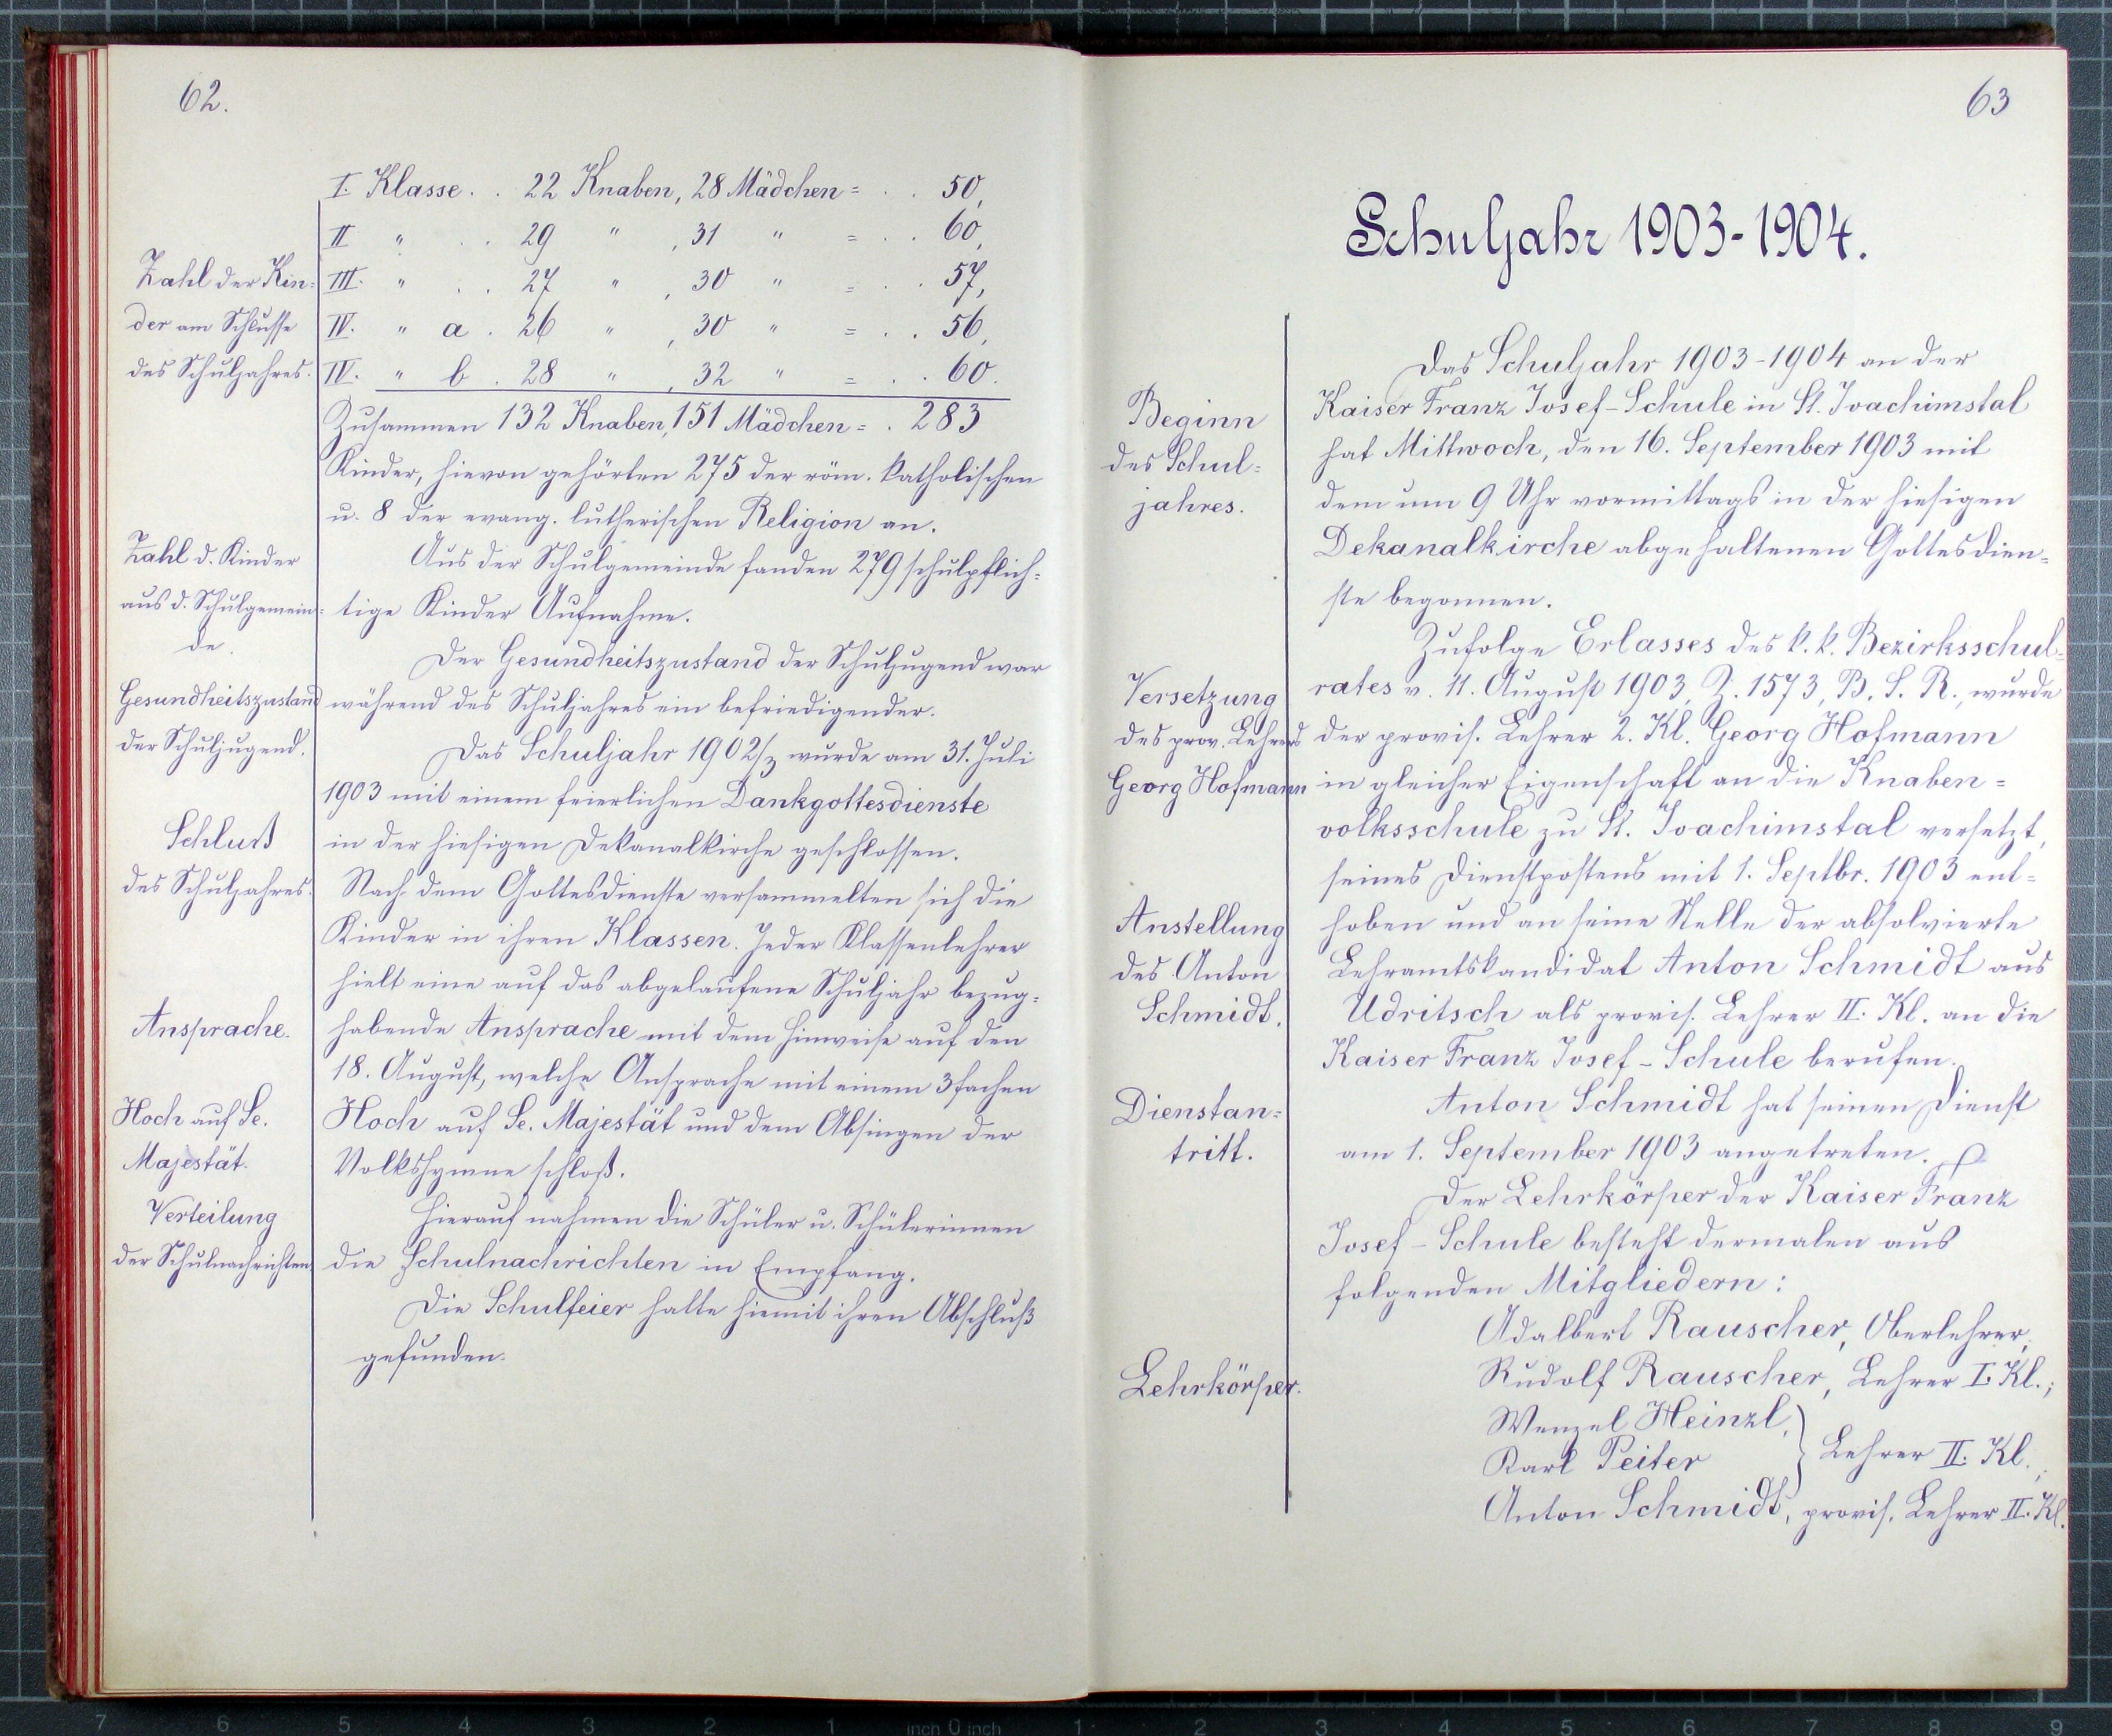 62.
I. Klasse . . 22 Knaben, 28 Mädchen = . . 50,
II " . . 29 " , 31 " = . . 60,
III. " . . 27 " , 30 " = . . 57,
IV. " a . 26 " , 30 " = . . 56,
IV. " b . 28 " , 32 " = . . 60.
Zahl der Kin=
der am Schlusse
des Schuljahres.
Zusammen 132 Knaben, 151 Mädchen = . 283
Kinder, hievon gehörten 275 der röm. katholischen
u. 8 der evang. lutherischen Religion an.
Zahl d. Kinder
aus d. Schulgemein=
de.
Aus der Schulgemeinde fanden 279 schulpflich=
tige Kinder Aufnahme.
Gesundheitszustand
der Schuljugend.
Der Gesundheitszustand der Schuljugend war
während des Schuljahres ein befriedigender.
Schluß
des Schuljahres.
Das Schuljahr 1902/3 wurde am 31. Juli
1903 mit einem feierlichen Dankgottesdienste
in der hiesigen Dekanalkirche geschlossen.
Nach dem Gottesdienste versammelten sich die
Kinder in ihren Klassen. Jeder Klassenlehrer
hielt eine auf das abgelaufene Schuljahr bezug=
Ansprache.
habende Ansprache mit dem Hinweise auf den
18. August, welche Ansprache mit einem 3fachen
Hoch auf Se.
Majestät.
Hoch auf Se. Majestät und dem Absingen der
Volkshymne schloß.
Verteilung
der Schulnachrichten
Hierauf nahmen die Schüler u. Schülerinnen
die Schulnachrichten in Empfang.
Die Schulfeier hatte hiemit ihren Abschluß
gefunden.
63
Schuljahr 1903-1904.
Beginn
des Schul=
jahres.
Das Schuljahr 1903-1904 an der
Kaiser Franz Josef-Schule in St. Joachimstal
hat Mittwoch, den 16. September 1903 mit
dem um 9 Uhr vormittags in der hiesigen
Dekanalkirche abgehaltenen Gottesdien=
ste begonnen.
Versetzung
des prov. Lehrers
Georg Hofmann
Zufolge Erlasses des k. k. Bezirksschul=
rates v. 11. August 1903, Z. 1573, B. S. R., wurde
der provis. Lehrer 2. Kl. Georg Hofmann
in gleicher Eigenschaft an die Knaben=
volksschule zu St. Joachimstal versetzt,
seines Dienstpostens mit 1. Septbr. 1903 ent=
Anstellung
des Anton
Schmidt.
hoben und an seine Stelle der absolvierte
Lehramtskandidat Anton Schmidt aus
Udritsch als provis. Lehrer II. Kl. an die
Kaiser Franz Josef-Schule berufen.
Dienstan=
tritt.
Anton Schmidt hat seinen Dienst
am 1. September 1903 angetreten.
Der Lehrkörper der Kaiser Franz
Josef-Schule besteht dermalen aus
folgenden Mitgliedern:
Lehrkörper.
Adalbert Rauscher, Oberlehrer,
Rudolf Rauscher, Lehrer I. Kl.;
Wenzel Heinzl,
Karl Peiter } Lehrer II. Kl.;
Anton Schmidt, provis. Lehrer II. Kl.
7 6 5 4 3 2 1 inch 0 inch 1 2 3 4 5 6 7 8 9